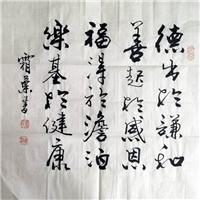 德出於謙和
善起於感恩
福得於澹泊
樂基於健康
霜葉書